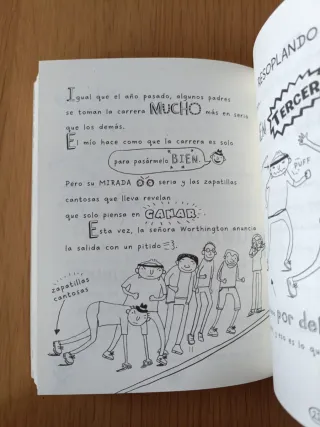 Igual que el año pasado, algunos padres
se toman la carrera MUCHO más en serio
que los demás.
El mío hace como que la carrera es solo
para pasármelo BIEN.
Pero su MIRADA seria y las zapatillas
cantosas que lleva revelan
que solo piensa en GANAR.
Esta vez, la señora Worthington anuncia
la salida con un pitido
zapatillas
cantosas
RESOPLANDO
EN TERCER
PUFF
por del